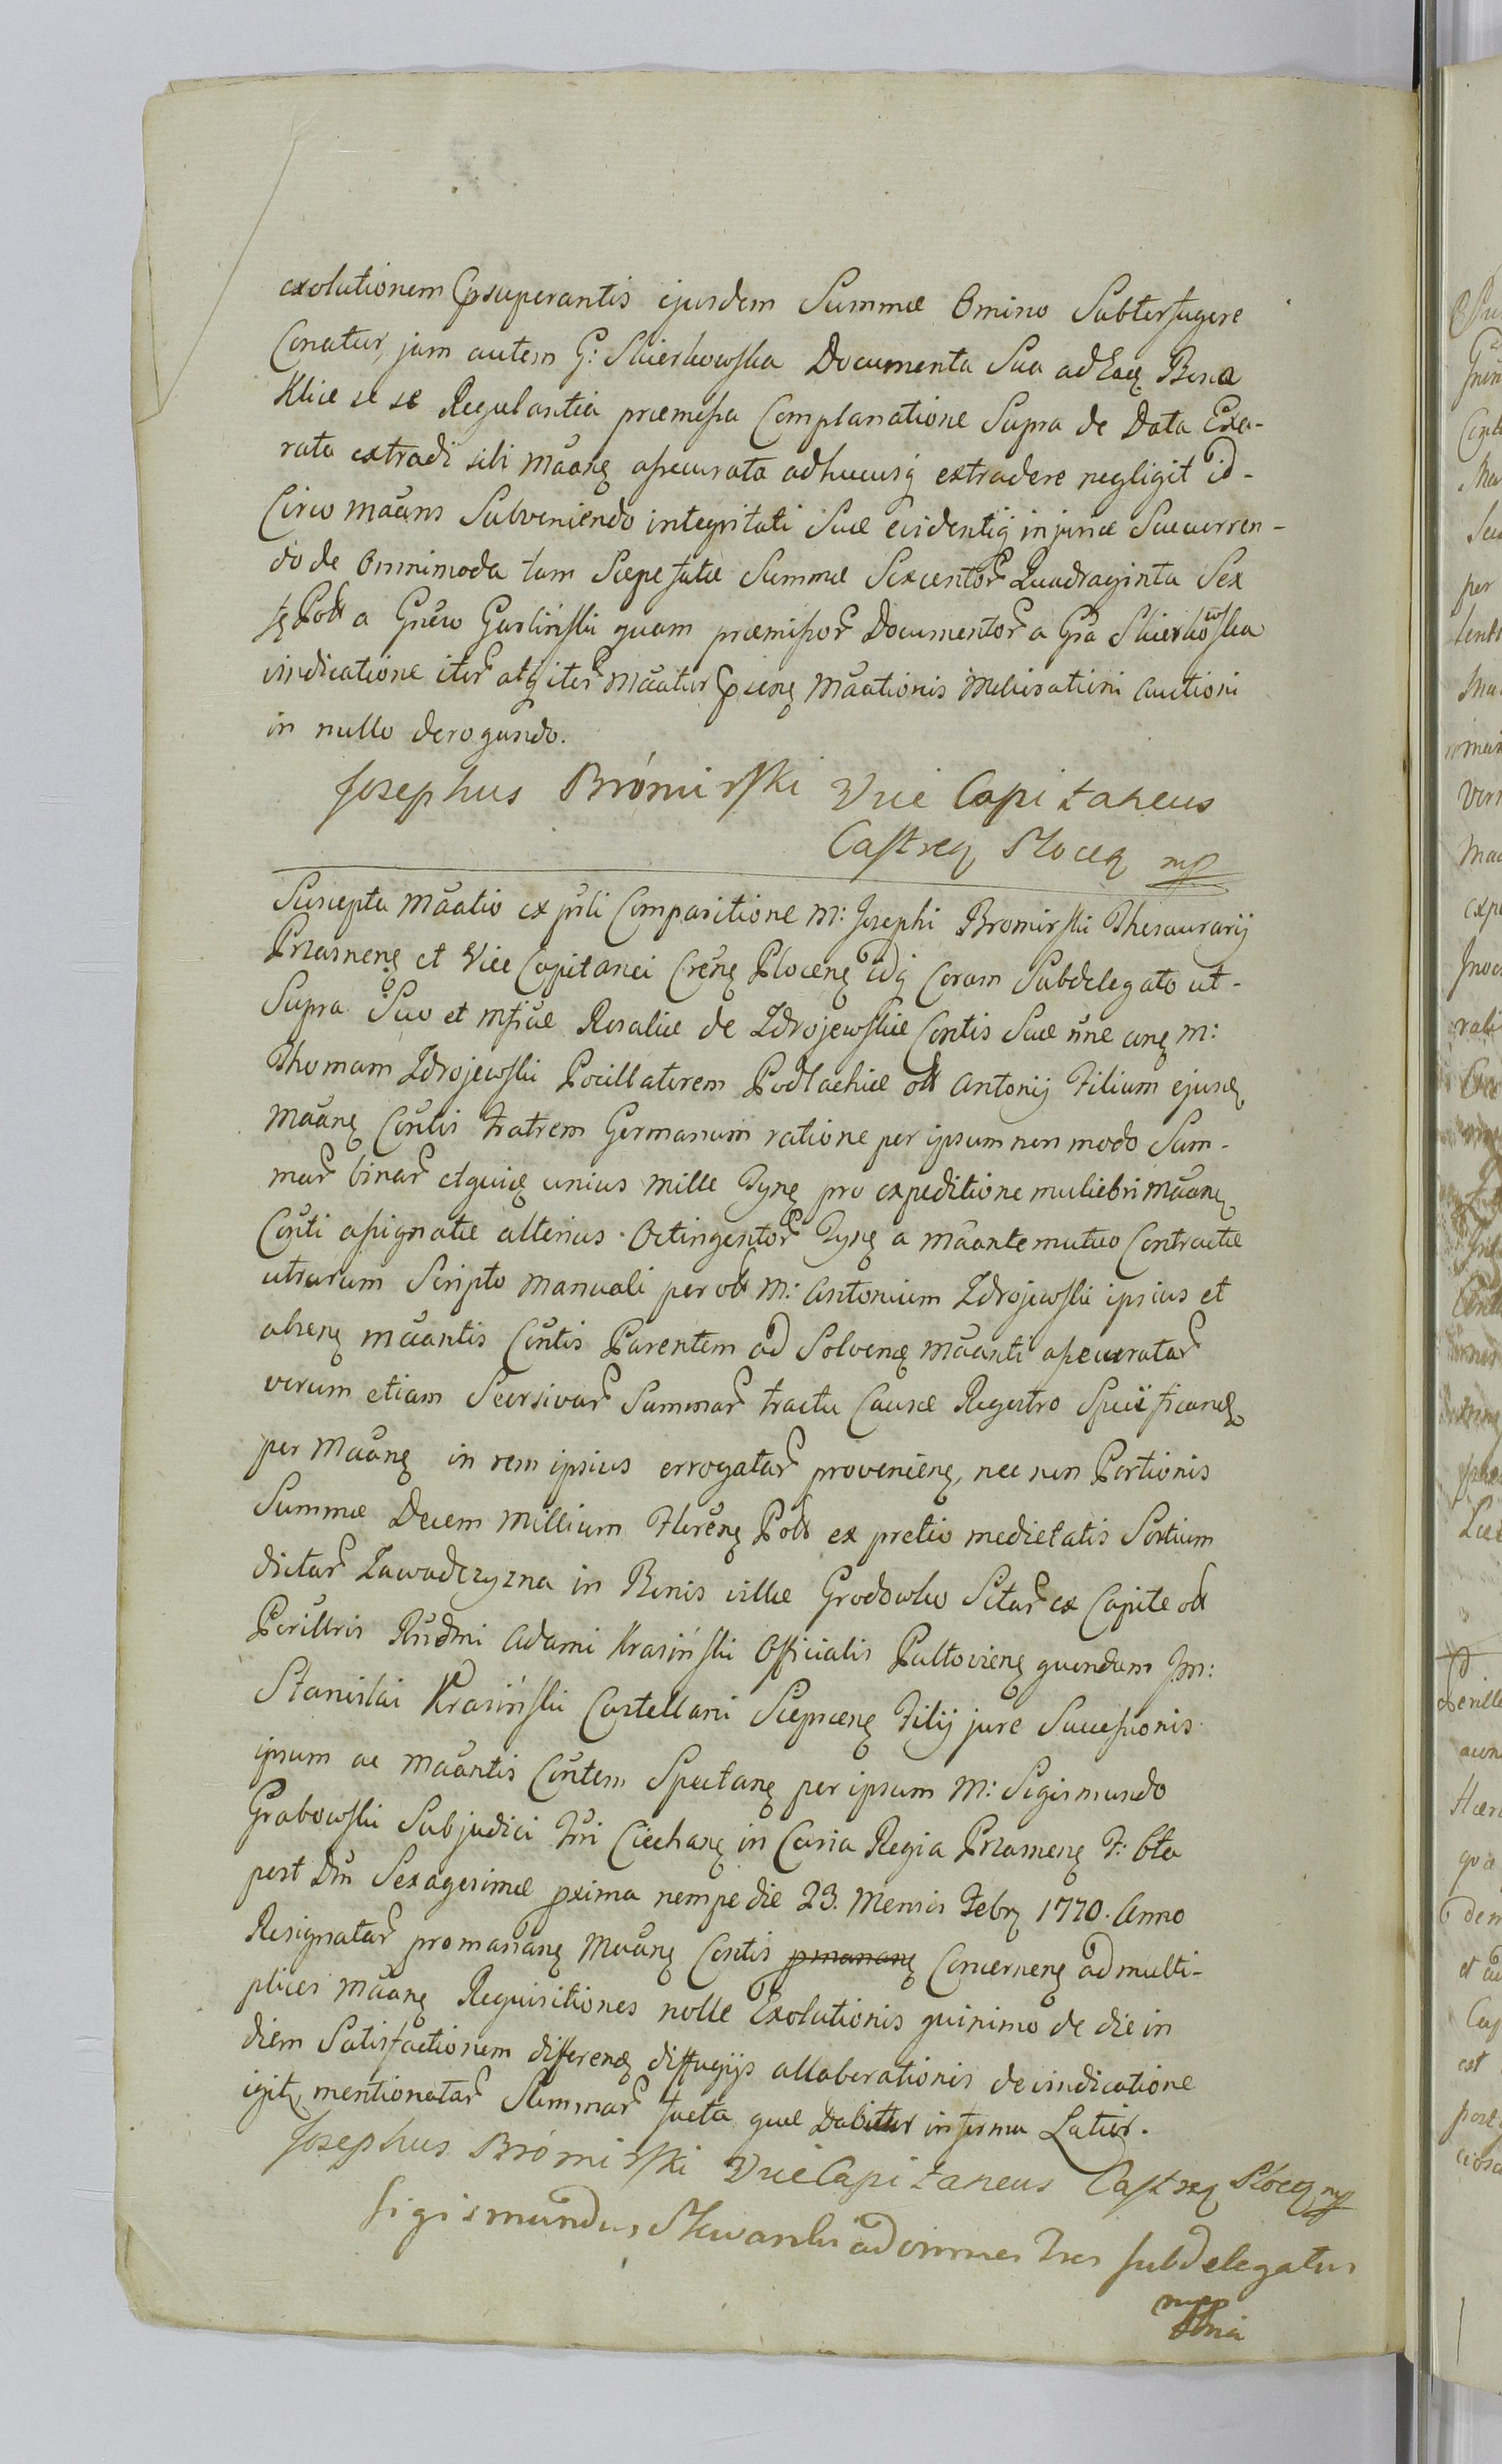 exolutionem supsuperantis ejusdem Summæ Omino Subterfugere
Conatur, jam autem G: Skierkowska Documenta Sua ad Eadę Bona
Klice se se Regulantia præmissa Complanatione Supra de Data Exa-
rata extradi sibi Mãanę assecurata adhucusq extradere negligit id-
Circo mãans Subveniendo integritati Suæ evidentiq injuriæ Succurren-
do de Omnimoda tam Sæpe fatæ Summæ Sexcentor Quadraginta Sex
fl Poll a Gnẽso Garliński quam præmissor Documentor a Gsa Skierkowska
vindicatione iter atq iter Mãatur Mãationis Meliorationi Auctioni
in nullo derogando.
Josephus Brómirski Vice Capitaneus
Castreę Plocę mp
Suscepta Mãatio ex psli Comparitione M: Josephi Bromirski Thesaurarij
Prasnenę et Vice Capitanei Crenę Plocenę idq Coram Subdelegato ut-
Supra Suo et Mficæ Rosaliæ de Zdrojewskie Contis Suæ nne conę M:
Thomam Zdrojewski Pocillatorem Podlachiæ oll Antonij Filium ejusdę
Mãanę Contis fratrem Germanum ratione per ipsum non modo Sum-
mar binar etquidę unius Mille Tynę pro expeditione muliebri Mãanę
Conti assignatæ alterius Octingentor Tynę a mãante mutuo Contractæ
utrarum Scripto Manuali per oll M: Antonium Zdrojewski ipsius et
absenę mãantis Contis Parentem ad Solvenę mãanti assecuratar
verum etiam Seorsivar Summar tractu Causæ Regestro Specificandę
per Mãanę in rem ipsius errogatar provenienę, nec non Portionis
Summæ Decem Millium Florenę Poll ex pretio medietatis Sortium
dictar Zawadczyzna in Bonis villæ Grodowko Sitar ex Capite oll
Perillris Rndmi Adami Krasiński Officialis Pultovienę quondam Jm:
Stanislai Krasiński Castellani Sieprcenę Filij jure Successionis
ipsum ac mãantis Contem Spectanę per ipsum M: Sigismundo
Grabowski Subjudici Tri Ciechanę in Curia Regia Prasnenę F: 6ta
post Dm Sexagesimæ pxima nempe die 23. Mensis Febrę 1770. Anno
Resignatar promananę Mãanę Contis pmananę Concernenę ad multi-
plices mãanę Requisitiones nolle Exolutionis quinimo de die in
diem Satisfactionem differenę diffugijs allaborationis de vindicatione
igitę mentionatar Summar facta quæ Dabitur in forma Latior.
Josephus Brómirski Vice Capitaneus Castreę Plocę mp
Sigismundus Skwarski ad omnes Ires subdelegatus
mp